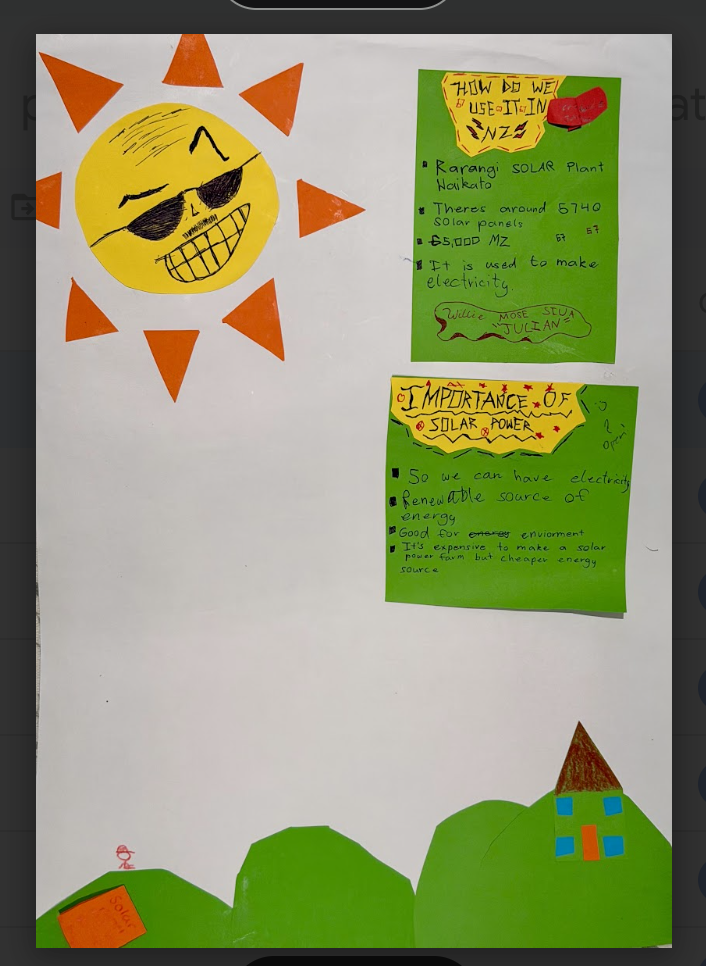 HOW DO WE
USE IT IN
NZ
Rarangi SOLAR Plant
Waikato
Theres around 5740
solar panels
65,000 MZ
57
57
It is used to make
electricity.
Willie MOSE SIUA
JULIAN
IMPORTANCE OF
SOLAR POWER
open
So we can have electricity
Renewable source of
energy
Good for energy enviorment
It's expensive to make a solar
power farm but cheaper energy
source
Solar